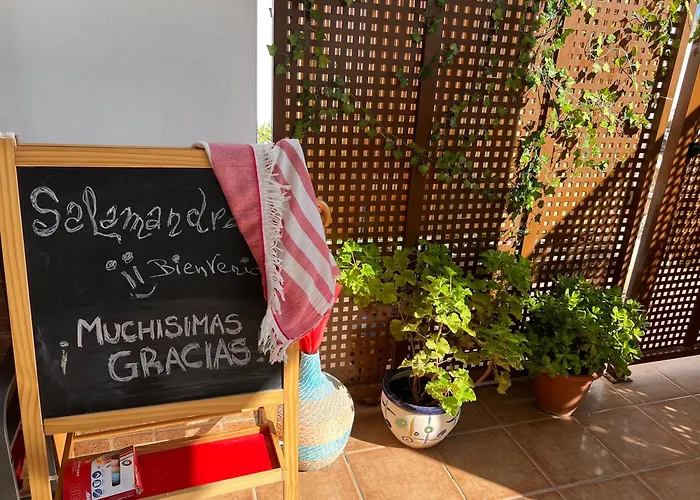 Salamandra
¡¡ Bienveni
¡ MUCHISIMAS
GRACIAS!